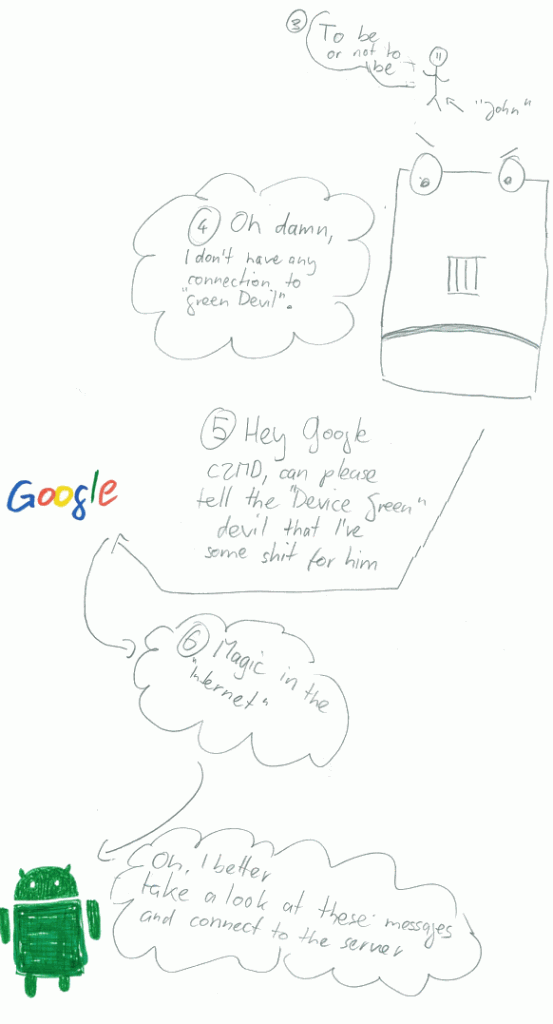 ③ To be
or not to
be
"John"
④ Oh damn,
I don't have any
connection to
"Green Devil".
⑤ Hey Google
C2MD, can please
tell the "Device Green"
devil that I've
some shit for him
Google
⑥ Magic in the
"Internet"
Oh, I better
take a look at these messages
and connect to the server